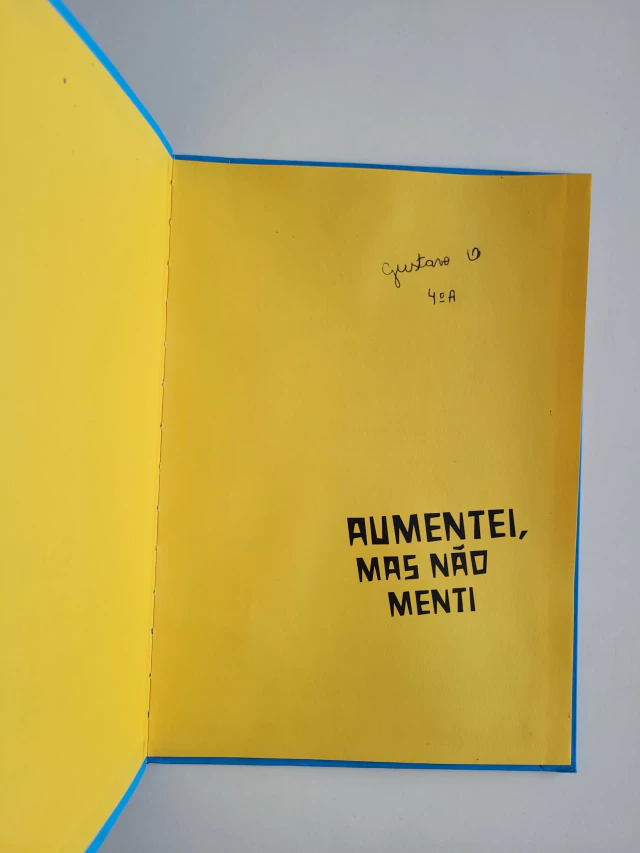 Gustavo
4º A
AUMENTEI,
MAS NÃO
MENTI